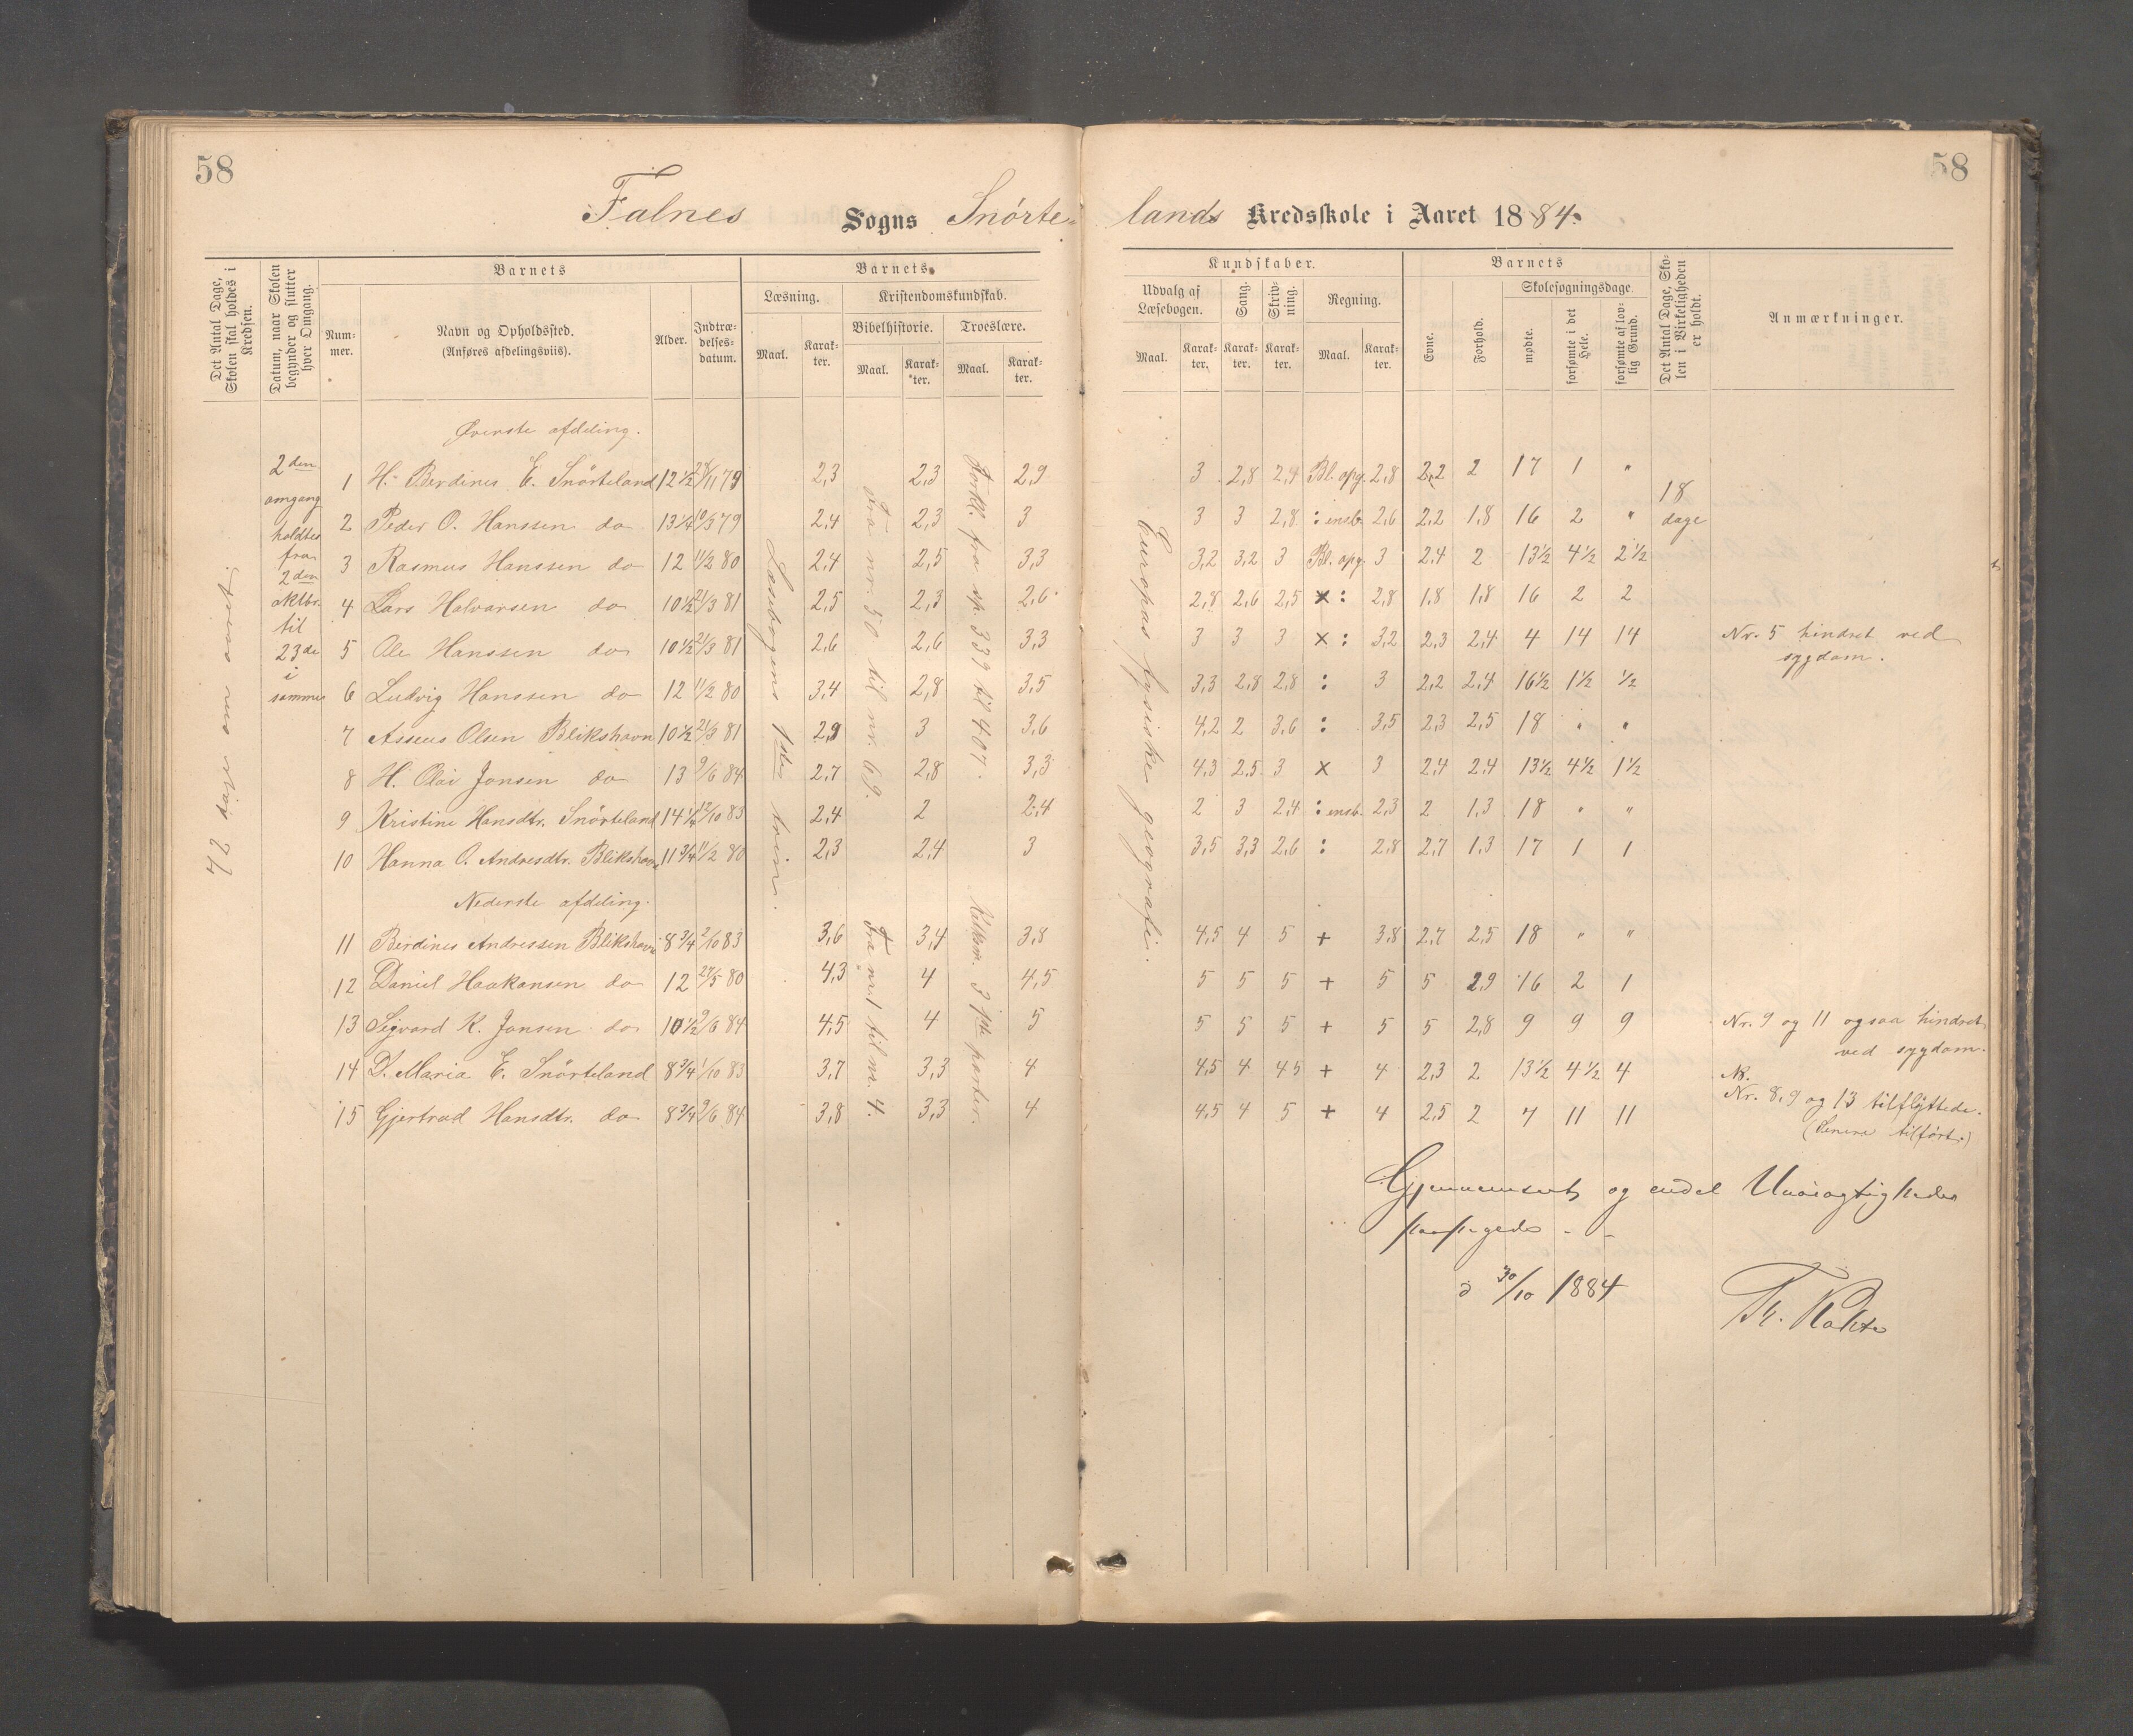 58
58
Falnes Sogns Snörte-
lands Kredsskole i Aaret 1884.
Det Antal Dage, Skolen skal holdes i Kredsen.
Datum, naar Skolen begynder og slutter hver Omgang.
Barnets
Num-mer.
Navn og Opholdssted.
(Anføres afdelingsviis).
Alder.
Indtræ-delses-datum.
Barnets
Læsning.
Maal.
Karak-ter.
Kristendomskundskab.
Bibelhistorie.
Maal.
Karak-ter.
Troeslære.
Maal.
Karak-ter.
Kundskaber.
Udvalg af Læsebogen.
Maal.
Karak-ter.
Sang.
Karak-ter.
Skriv-ning.
Karak-ter.
Regning.
Maal.
Karak-ter.
Barnets
Evne.
Forhold.
Skolesøgningsdage.
mødte.
forsømte i det Hele.
forsømte af lov-lig Grund.
Det Antal Dage, Sko-len i Virkeligheden er holdt.
Anmærkninger.
42 dage om aaret.
2den
omgang
holdtes
fra
2den
oktbr.
til
23de
i
samme
Læsebogens 1ste trin.
Fra nr. 50 til nr. 69.
Forkl. fra sp. 339 til 407.
Europas fysiske geografi.
18
dage
Øverste afdeling.
1 H. Berdines E. Snörteland 12 1/2 24/11 79 2,3 2,3 2,9 3 2,8 2,4 Bl. opg. 2,8 2,2 2 17 1 "
2 Peder O. Hanssen do 13 1/4 10/3 79 2,4 2,3 3 3 3 2,8 : ensb. 2,6 2,2 1,8 16 2 "
3 Rasmus Hanssen do 12 11/2 80 2,4 2,5 3,3 3,2 3,2 3 Bl. opg. 3 2,4 2 13 1/2 4 1/2 2 1/2
4 Lars Halvarsen do 10 1/2 21/3 81 2,5 2,3 2,6 2,8 2,6 2,5 x : 2,8 1,8 1,8 16 2 2
5 Ole Hanssen do 10 1/2 21/3 81 2,6 2,6 3,3 3 3 3 x : 3,2 2,3 2,4 4 14 14 Nr. 5 hindret ved
sygdom.
6 Ludvig Hanssen do 12 11/2 80 3,4 2,8 3,5 3,3 2,8 2,8 : 3 2,2 2,4 16 1/2 1 1/2 1/2
7 Asseus Olsen Blikshavn 10 1/2 21/3 81 2,9 3 3,6 4,2 2 3,6 : 3,5 2,3 2,5 18 " "
8 H. Olai Jonsen do 13 9/6 84 2,7 2,8 3,3 4,3 2,5 3 x 3 2,4 2,4 13 1/2 4 1/2 1 1/2
9 Kristine Hansdtr. Snörteland 14 1/4 12/10 83 2,4 2 2,4 2 3 2,4 : ensb. 2,3 2 1,3 18 " "
10 Hanna O. Andresdtr. Blikshavn 11 3/4 11/2 80 2,3 2,4 3 3,5 3,3 2,6 : 2,8 2,7 1,3 17 1 1
Nederste afdeling.
Fra nr. 1 til nr. 4.
3 parter.
11 Berdines Andressen Blikshavn 8 3/4 2/10 83 3,6 3,4 3,8 4,5 4 5 + 3,8 2,7 2,5 18 " "
12 Daniel Haakonsen do 12 27/5 80 4,3 4 4,5 5 5 5 + 5 5 2,9 16 2 1
13 Sigvard K. Jonsen do 10 1/2 9/6 84 4,5 4 5 5 5 5 + 5 5 2,8 9 9 9 Nr. 9 og 11 ogsaa hindret
ved sygdom.
14 D. Maria E. Snörteland 8 3/4 1/10 83 3,7 3,3 4 4,5 4 4,5 + 4 2,3 2 13 1/2 4 1/2 4
Nr. 8, 9 og 13 tilflyttede.
15 Gjertrud Hansdtr. do 8 3/4 9/6 84 3,8 3,3 4 4,5 4 5 + 4 2,5 2 7 11 11
(Senere tilført.)
Gjennemseet og endel Unöiagtigheder
paapegede -
d 30/10 1884